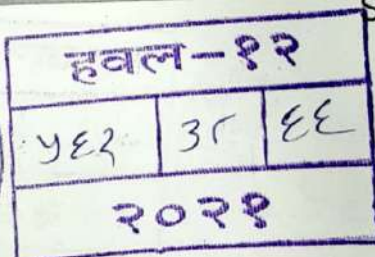 हवल-१२
५६२ ३८ ६६
२०२१